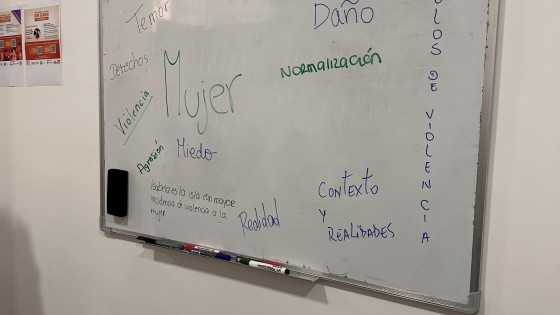 Temor
Daño
Derechos
Mujer
Normalización
Violencia
Agresión
Miedo
Isabela es la isla con mayor
incidencia de violencia a la
mujer
Realidad
CONTEXTO
Y
REALIDADES
OLOS DE VIOLENCIA